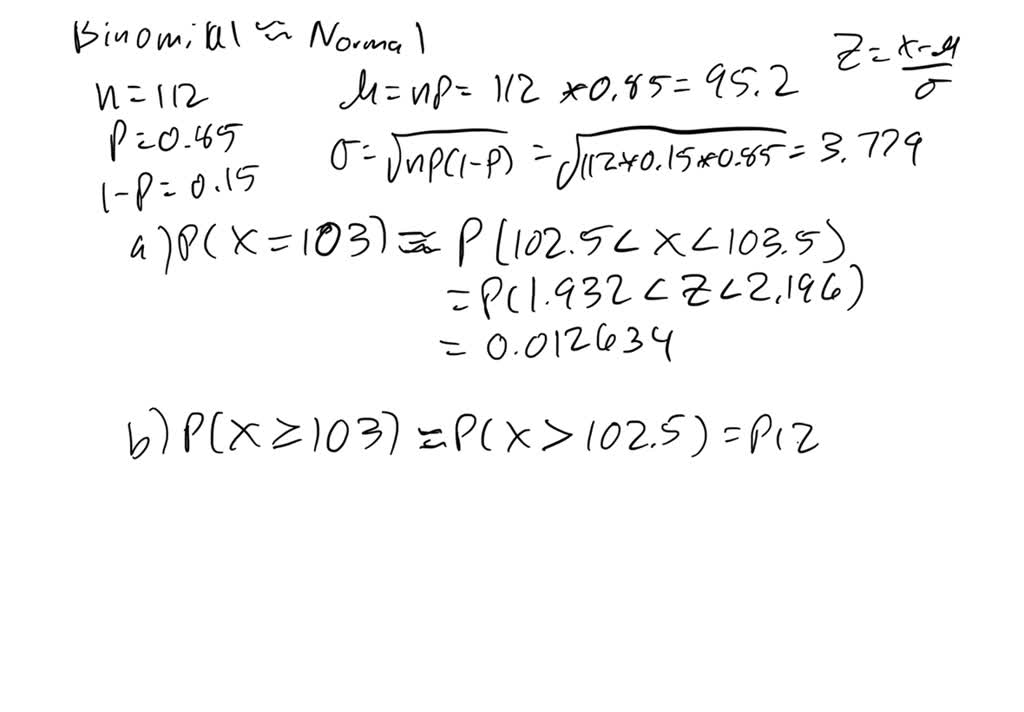 Binomial ≈ Normal
Z = (x-μ)/σ
n=112
μ=np= 112 *0.85= 95.2
p=0.85
σ=√np(1-p) =√112*0.15*0.85 = 3.779
1-p= 0.15
a) P(X=103) ≈ P(102.5< X <103.5)
= P(1.932 < Z < 2.196)
= 0.012634
b) P(X ≥ 103) ≈ P(X > 102.5) = P(Z